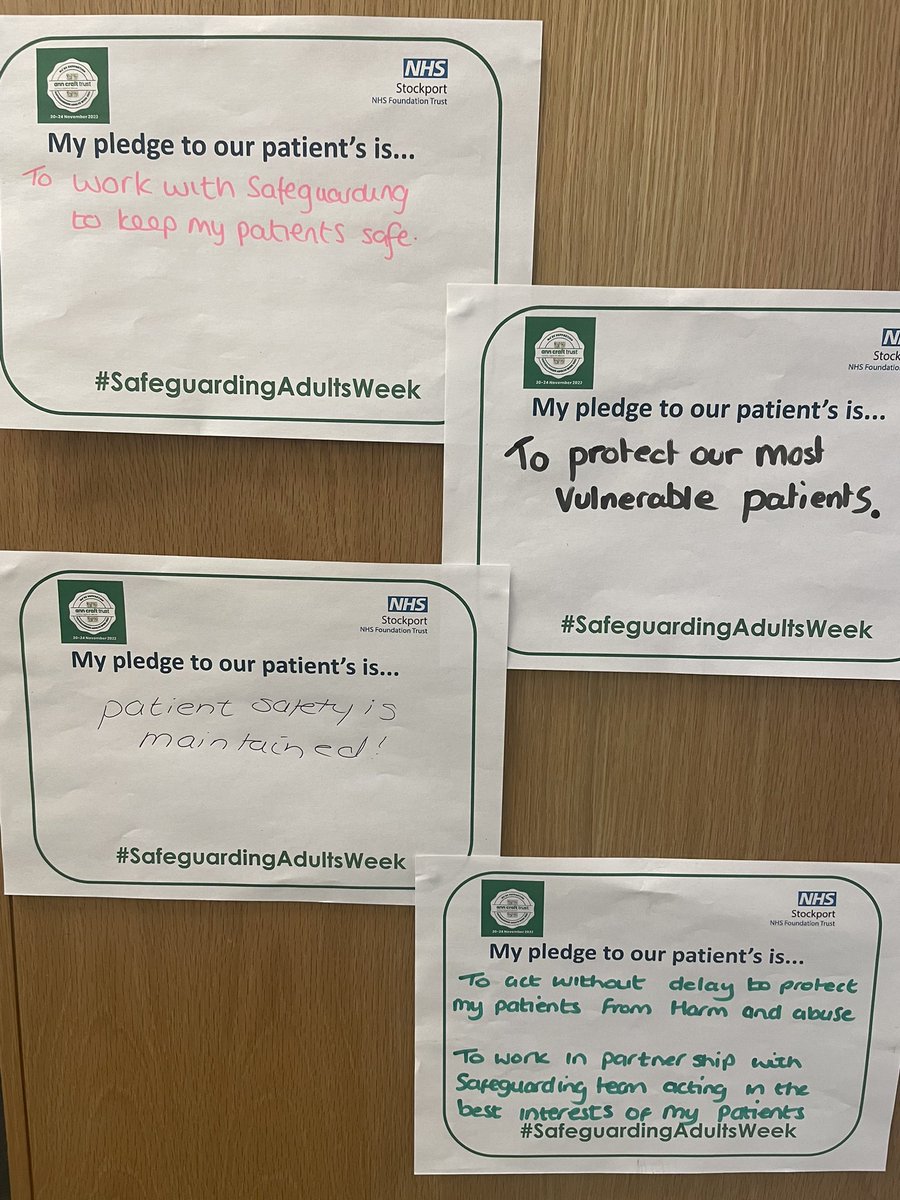 ann craft trust
20-24 November 2023
NHS
Stockport
NHS Foundation Trust
My pledge to our patient's is...
To work with Safeguarding
to keep my patients safe.
#SafeguardingAdultsWeek
ann craft trust
20-24 November 2023
Stock
NHS Foundation
My pledge to our patient's is...
To protect our most
vulnerable patients.
#SafeguardingAdultsWeek
ann craft trust
20-24 November 2023
NHS
Stockport
NHS Foundation Trust
My pledge to our patient's is...
patient safety is
maintained!
#SafeguardingAdultsWeek
ann craft trust
20-24 November 2023
NHS
Stockport
NHS Foundation Trust
My pledge to our patient's is...
To act without delay to protect
my patients from Harm and abuse
To work in partner ship with
Safeguarding team acting in the
best interests of my patients
#SafeguardingAdultsWeek